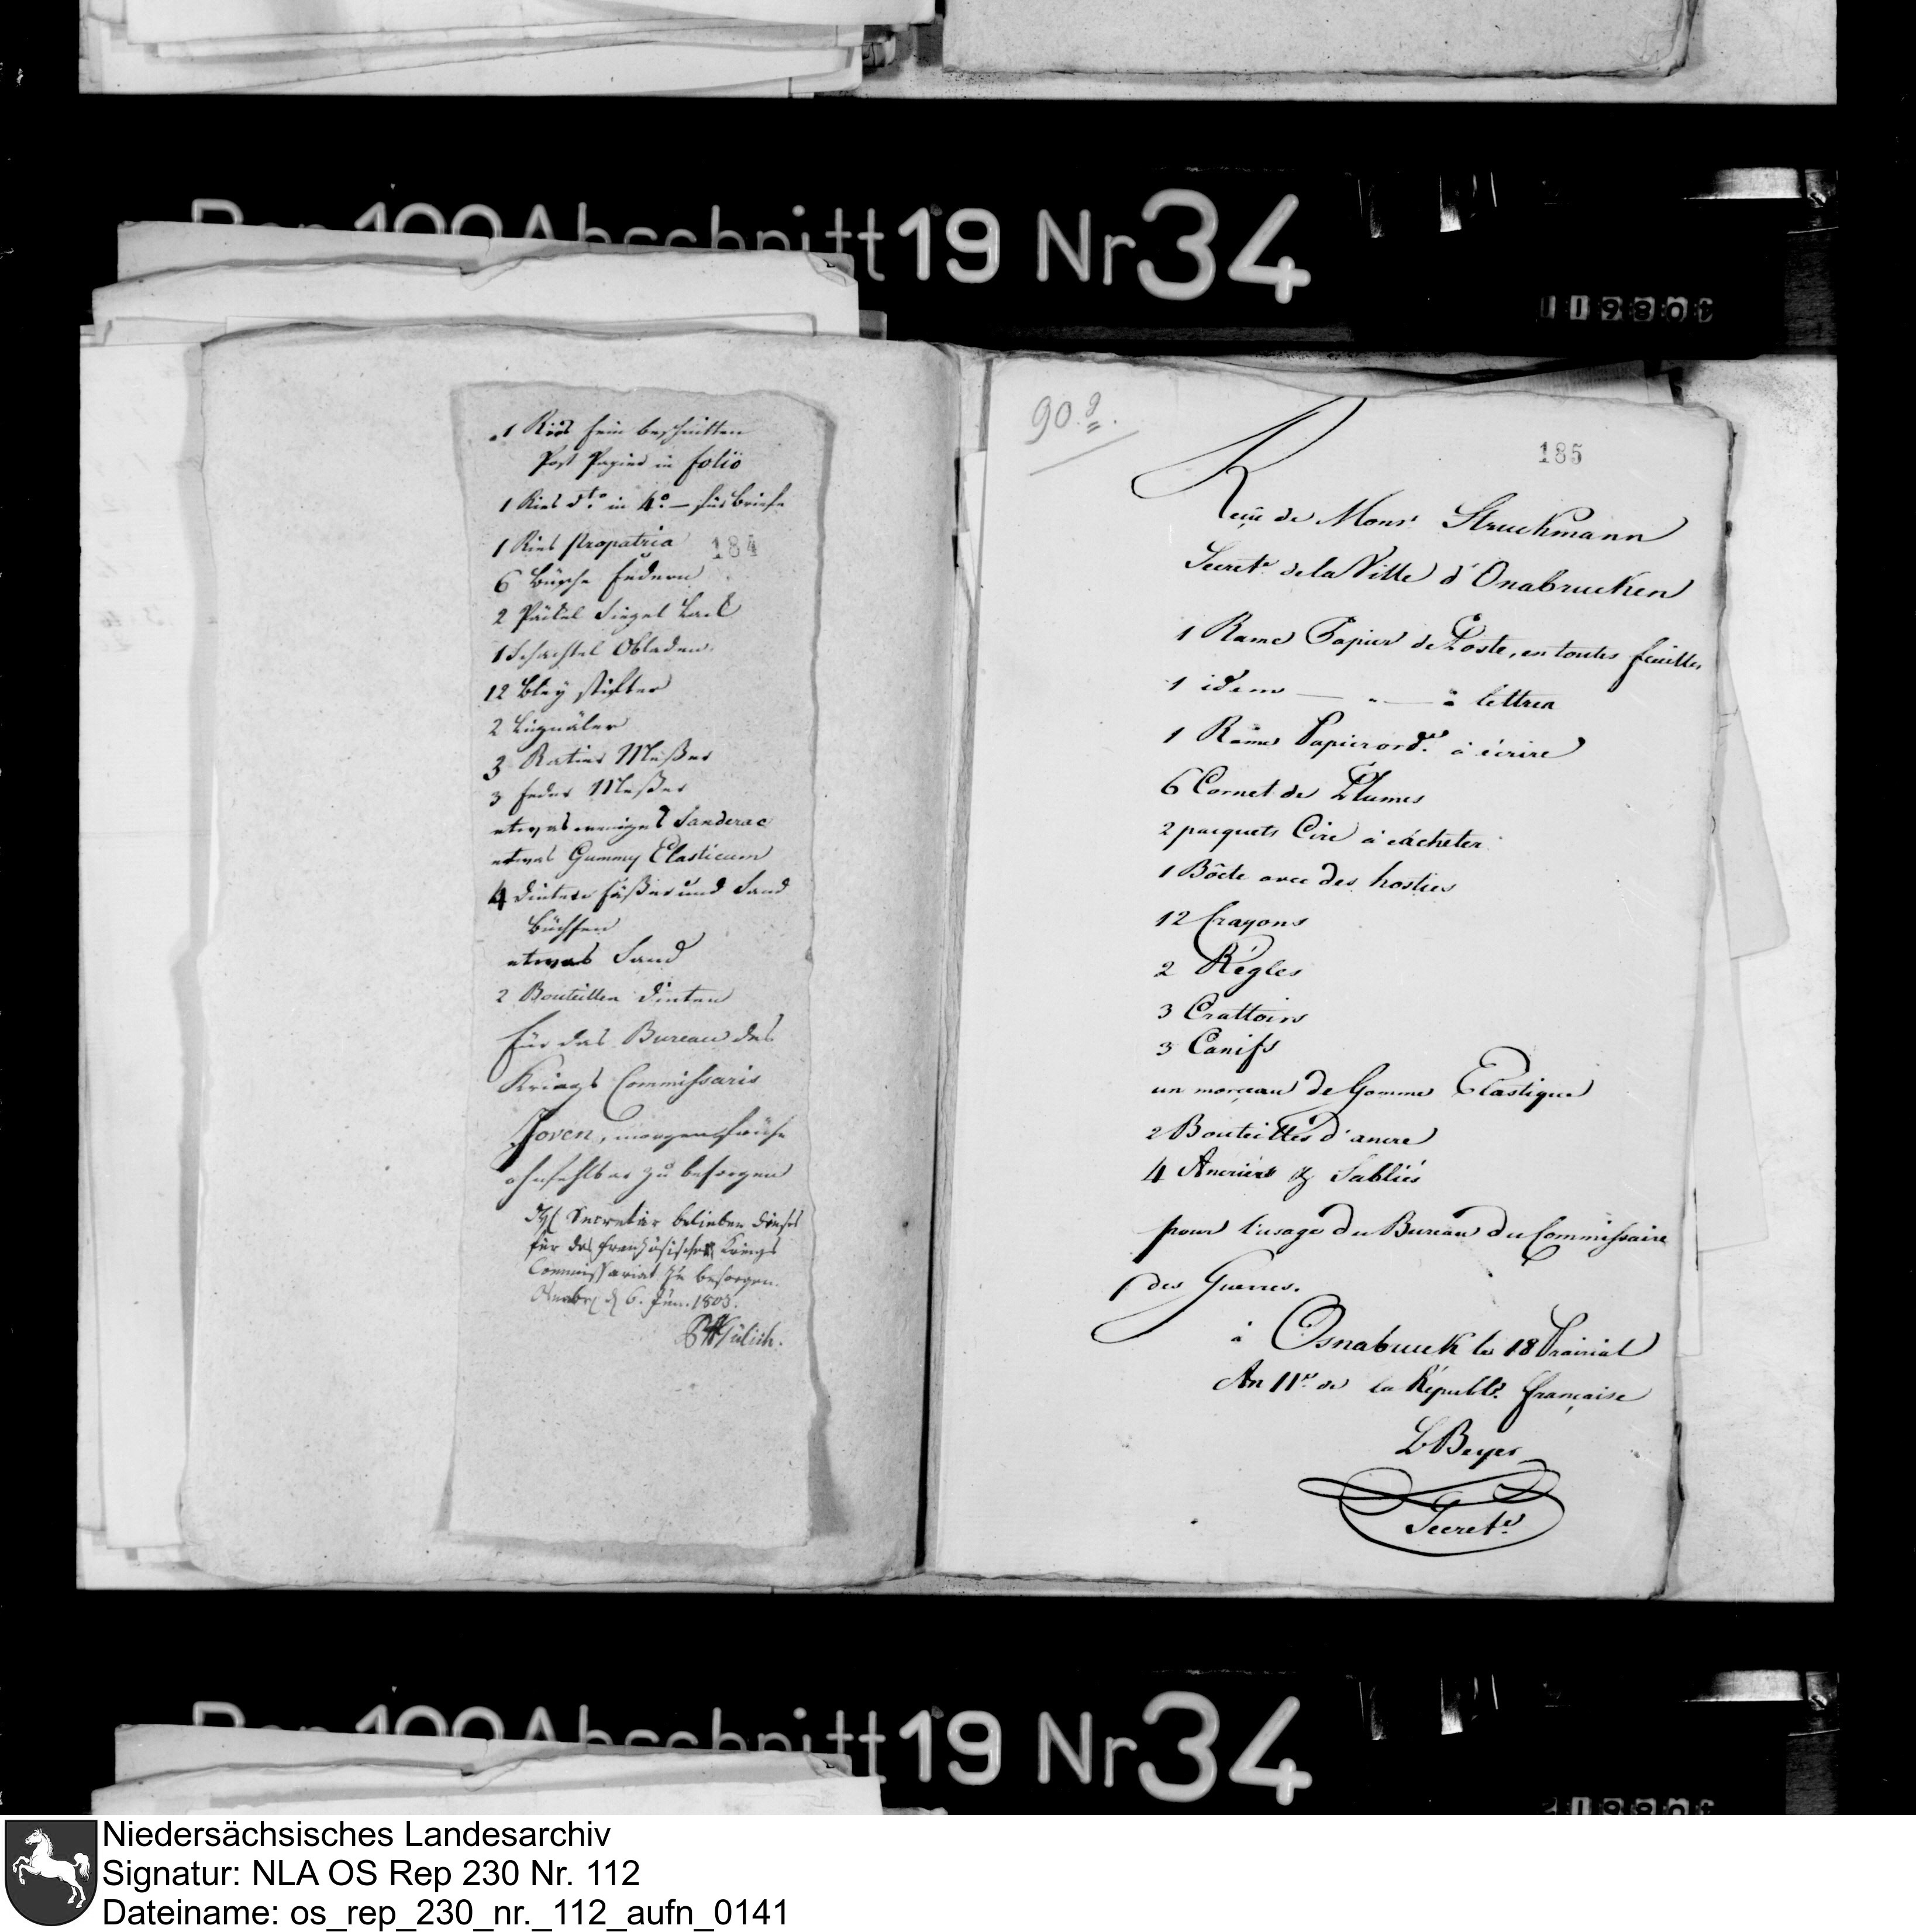 Rep 100 Abschnitt 19 Nr 34
1 Ries fein beschnitten
Post Papier in folio
1 Ries dto. in 4o. — für Briefe
1 Ries Propatria
184
6 Busche Federn
2 Päckel Siegel Lack
1 Schachtel Obladen
12 Bley stifter
2 Liniäler
3 Ratier Meßer
3 Feder Meßer
etwas weniges Sanderac
etwas Gummy Elasticum
4 Dinten Fäßer und Sand
Büchsen
etwas Sand
2 Bouteillen Dinten
für das Bureau des
Kriegs Commissaris
Joven, morgen frühe
ohnfehlbar zu besorgen
Secretär belieben dieses
für das französische Kriegs
Commissariat zu besorgen.
Osnabr. d 6. Jun. 1803.
Gülich.
90.
185
Reçu de Monsr Struckmann
Secretr de la Ville d'Onabrucken
1 Rame Papier de Poste, en toutes feuilles
1 idem — " — à lettres
1 Rame Papier ordre. à écrire
6 Cornet de Plumes
2 pacquets Cire à cácheter
1 Böete avec des hosties
12 Crayons
2 Régles
3 Crattoirs
3 Canifs
un morceau de Gomme Elastique
2 Bouteilles d'ancre
4 Ancriérs & Sabliés
pour l'usage du Bureau du Commissaire
des Guerres.
à Osnabruck le 18 Prairial
An 11e. de la Républe. française
L Beyer
Secrete.
Rep 100 Abschnitt 19 Nr 34
Niedersächsisches Landesarchiv
Signatur: NLA OS Rep 230 Nr. 112
Dateiname: os_rep_230_nr._112_aufn_0141